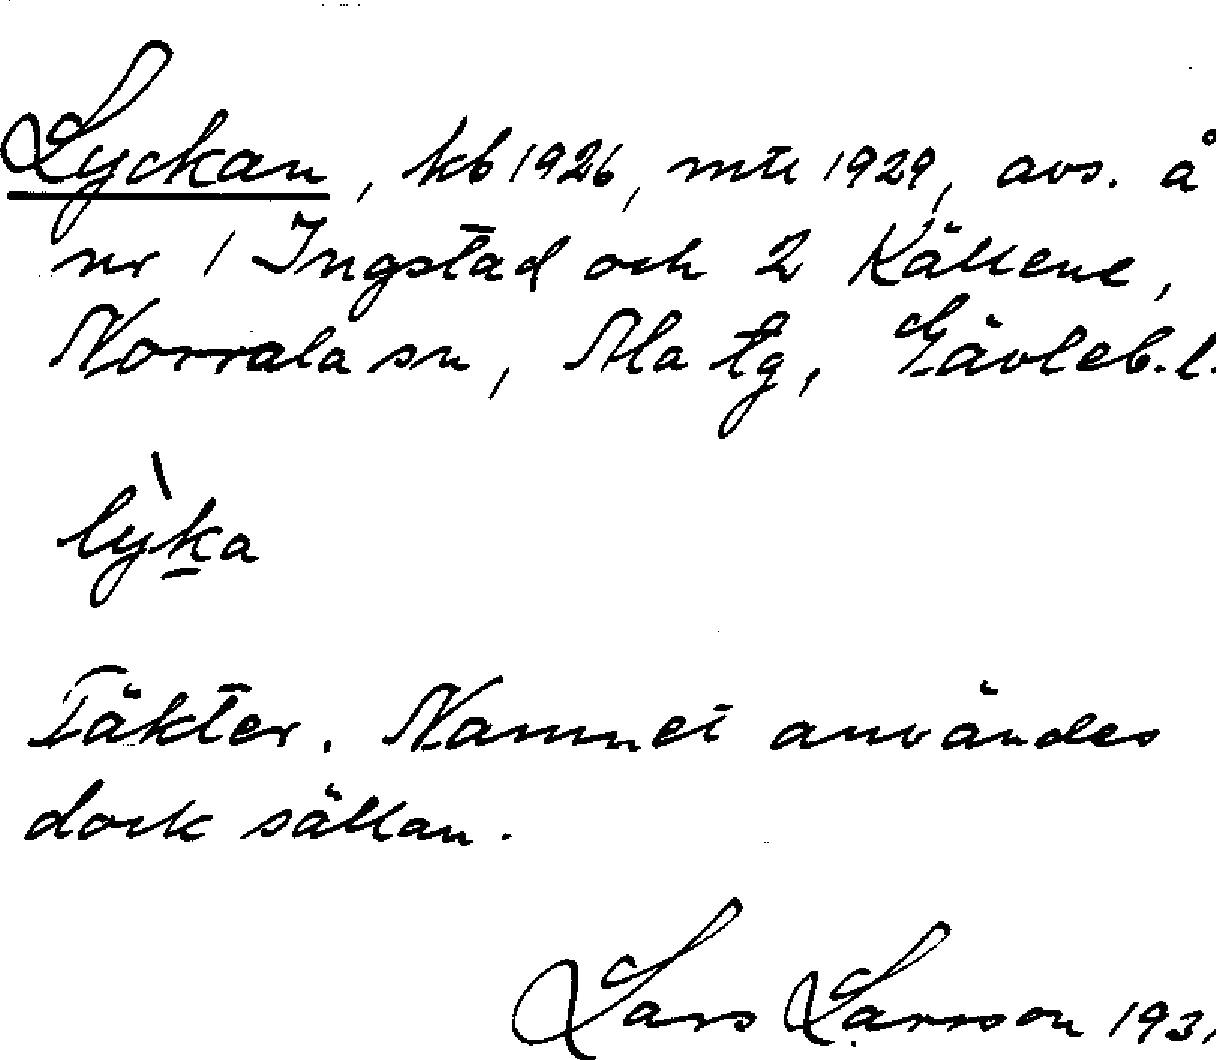 Lyckan, kb 1926, mtl 1929, avs. å
nr 1 Ingstad och 2 Källene,
Norrala sn, Ala tg, Gävleb. l.
lỳka
Täkter. Namnet användes
dock sällan.
Lars Larsson 1931